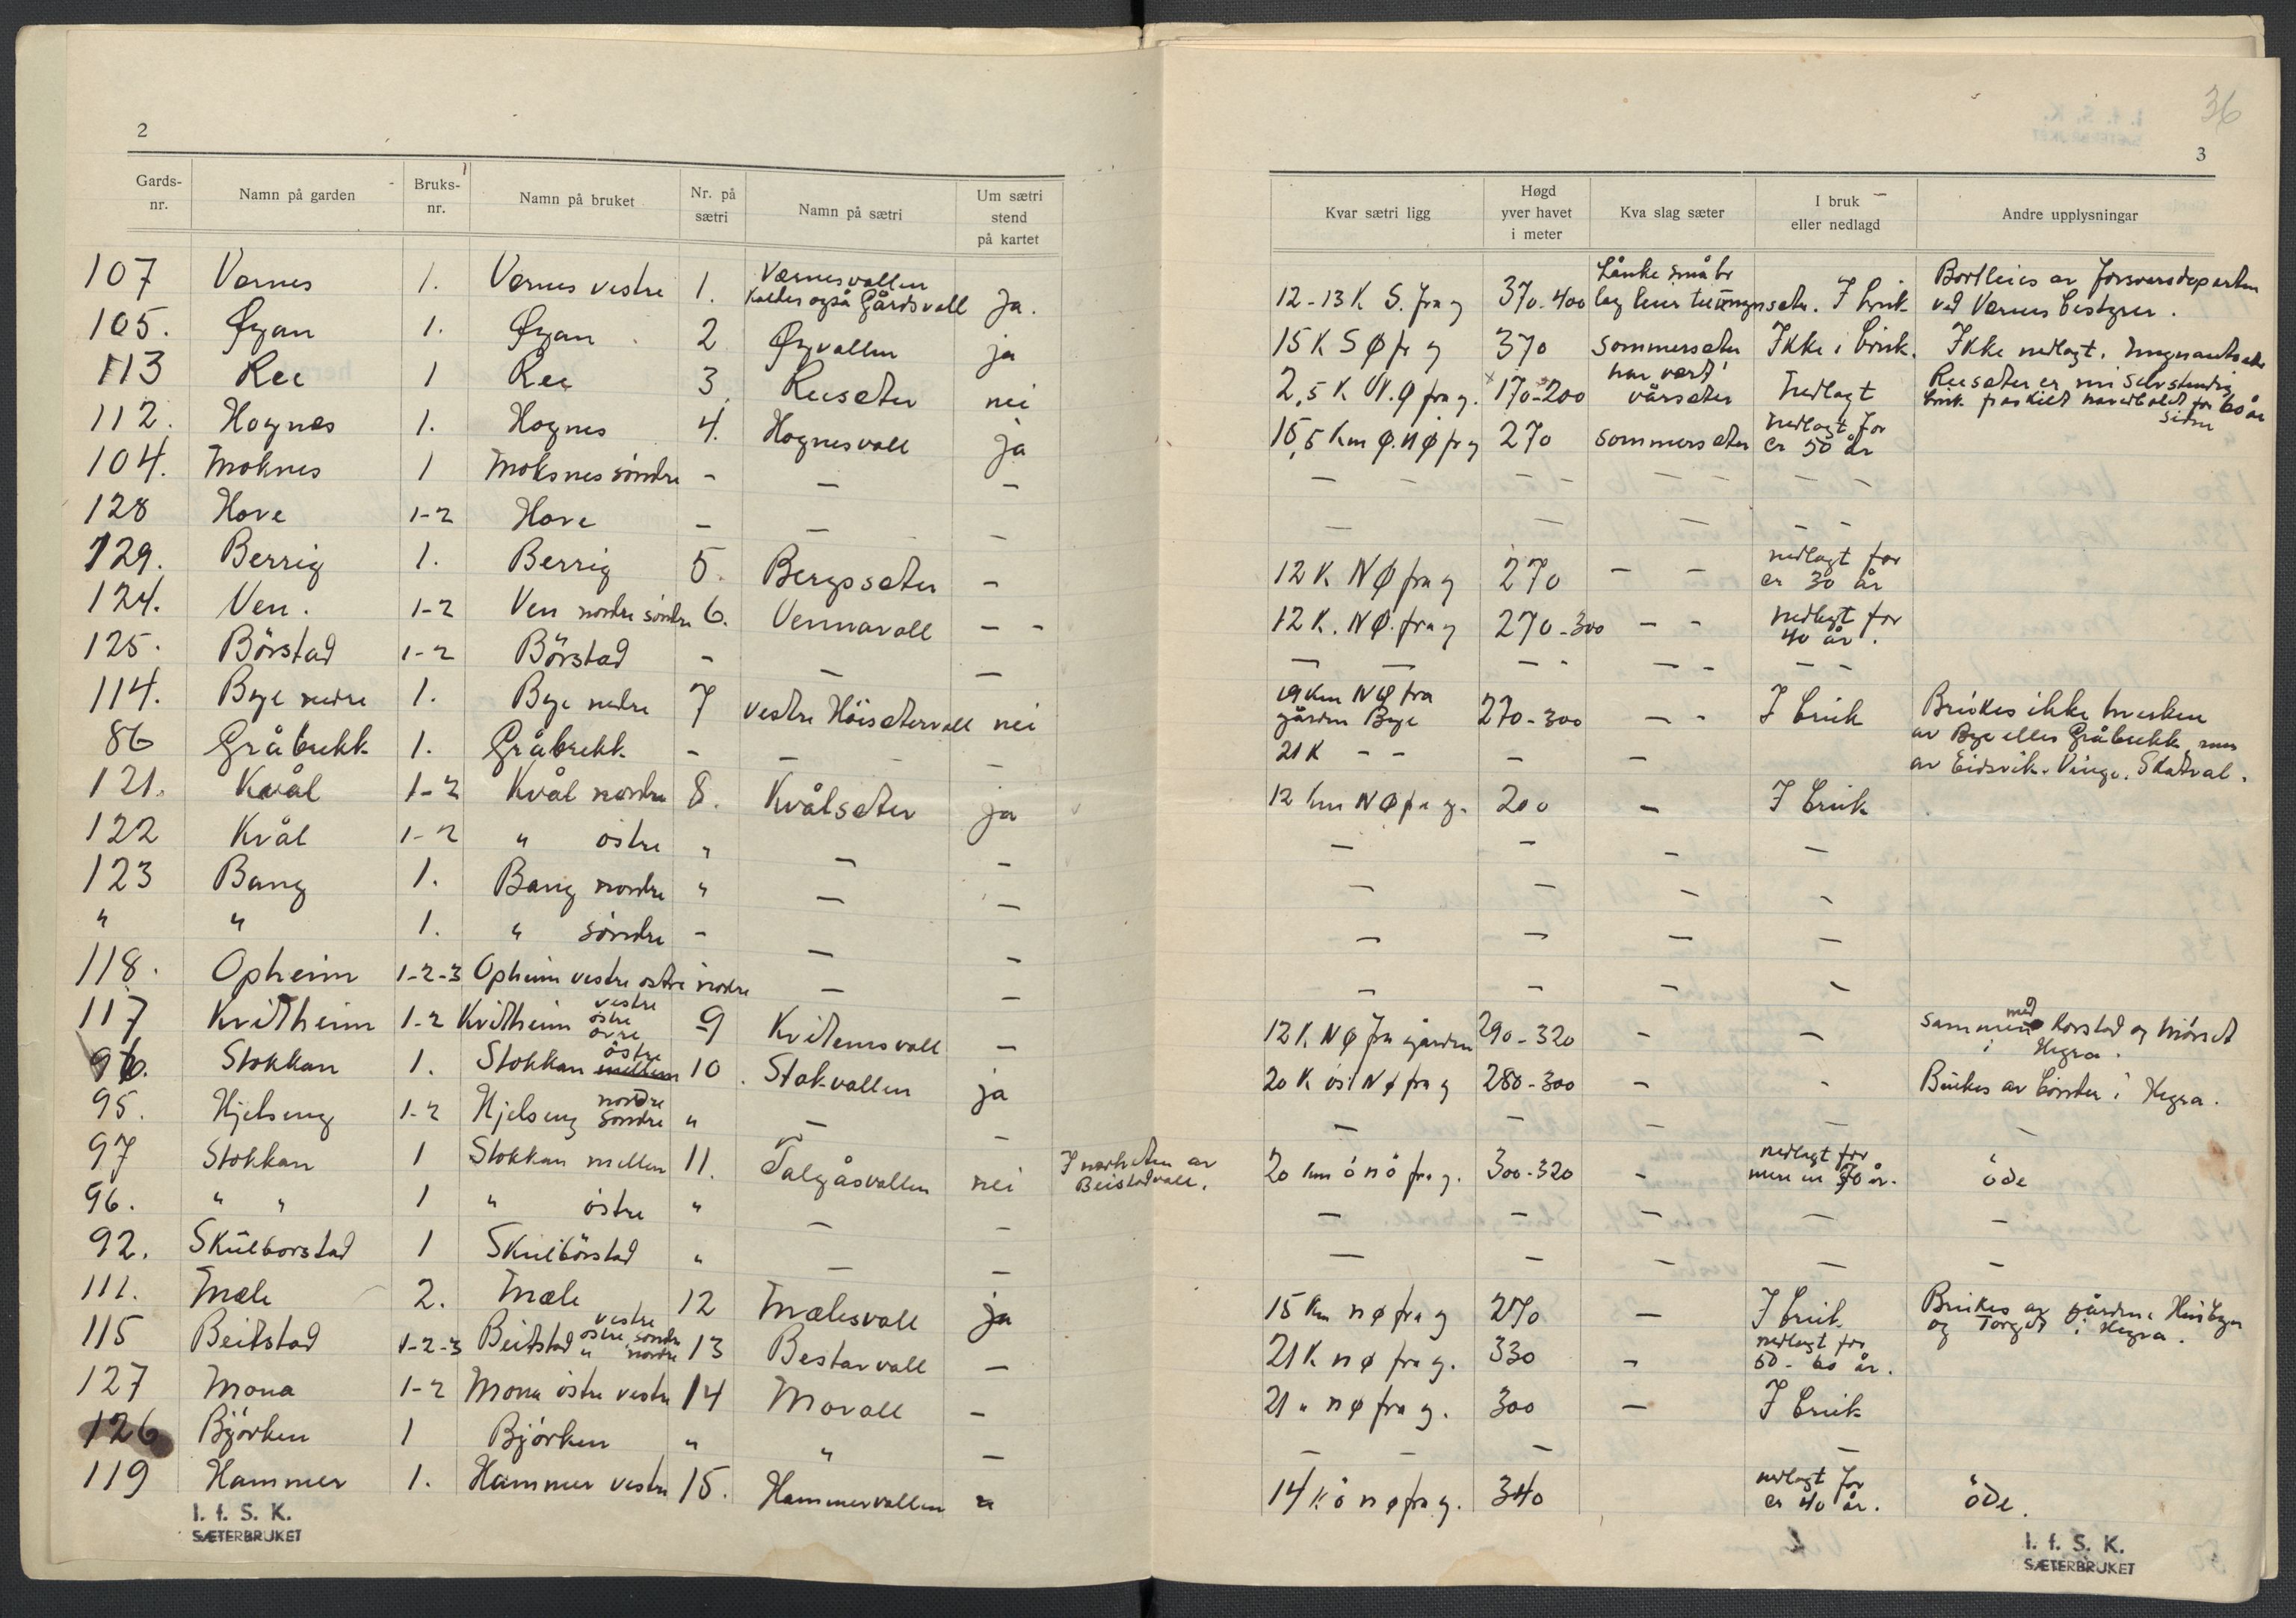 2
Gards-nr. Namn på garden Bruks-nr. Namn på bruket Nr. på sætri Namn på sætri Um sætri stend på kartet
107 Værnes 1. Værnes vestre 1. Værnesvollen kaldes også Gårdsvoll Ja.
105. Øyan 1. Øyan 2 Øyvollen ja
113 Ree 1 Ree 3. Reesæter nei
112. Hognes 1. Hognes 4. Hognesvoll ja
104. Moknes 1 Moksnes söndre - — —
128 Hove 1-2 Hove — — —
129. Berrig 1. Berrig 5. Bergssæter —
124. Ven. 1-2 Ven nordre söndre 6. Vennavoll — -
125. Börstad 1-2 Börstad - — —
114. Bye nedre 1. Bye nedre 7 vestre Höisetervoll nei
86 Gråbrekk 1. Gråbrekk - — —
121. Kvål 1-2 Kvål nordre 8. Kvålsæter ja
122 Kvål 1-2 " östre " — —
123 Bang 1. Bang nordre " — —
" " 1. " söndre - — —
118. Opheim 1-2-3 Opheim vestre östre nordre — —
117 Kvitheim 1-2 Kvitheim vestre östre övre 9 Kvitemsvoll —
96. Stokkan 1. Stokkan östre mellem 10. Stokvollen ja
95. Hjelseng 1-2 Hjelseng nordre söndre " — —
97 Stokkan 1 Stokkan mellem 11. Talgåsvollen nei I nærheten av Beistadvoll.
96. " " 1 " östre " — —
92. Skulborstad 1 Skulbörstad " — —
111. Mæle 2. Mæle 12 Mælesvoll ja
115 Beitstad 1-2-3 Beitstad vestre östre söndre " nordre 13 Bestavoll —
127 Mona 1-2 Mona östre vestre 14 Movoll —
126 Björken 1 Björken " " —
119 Hammer 1. Hammer vestre 15. Hammervollen "
I. f. S. K.
SÆTERBRUKET
36
3
Kvar sætri ligg Høgd yver havet i meter Kva slag sæter I bruk eller nedlagd Andre upplysningar
12-13 K S. fra g 370-400 Lånke småbr lag sæter. I bruk Bortleies av Forsvarsdeparten ved Værnes bestyrer.
15 K S Ø fr g 370 sommersæter Ikke i bruk. Ikke nedlagt.
2,5 K N.Ø fra g. 170-200 har vært vårsæter nedlagt Reesæter er nu selvstendig bruk fraskilt for 60 år siden
15,5 Km Ø.NØ fr g 270 sommersæter nedlagt for er 50 år
— - — - — — - —
— — — - -
12 K NØ fra g 270 — - nedlagt for er 30 år
12 K. NØ. fra g 270-300 — - nedlagt for 40 år.
— — — - — - — -
19 Km NØ fra gården Bye 270-300 — - I bruk Brukes ikke hverken
21 K - - — — av Bye eller Gråbrekk, men av Eidsvik. Vinge. Skatval.
12 km NØ fra g. 200 — I bruk
— — — —
— — — -
— — — —
— — — -
12 K NØ fra gården 290-320 - — sammen med Korstad og Mörset i Hegra.
20 K öst NØ fra g 280-300 - - Brukes av i Hegra.
— — — — —
20 km ö nö fra g. 300-320 - nedlagt for mere en 70 år. öde
— — — — —
— — — — —
15 Km nø fra g 270 — I bruk Brukes av gården Husbyn og Torget i Hegra.
21 K nø fra g. 330 - nedlagt for 50-60 år.
21 " nø fra g. 300 — I bruk
— — — —
14 K ö nø fra g. 340 nedlagt for er 40 år. öde.
I. f. S. K.
SÆTERBRUKET